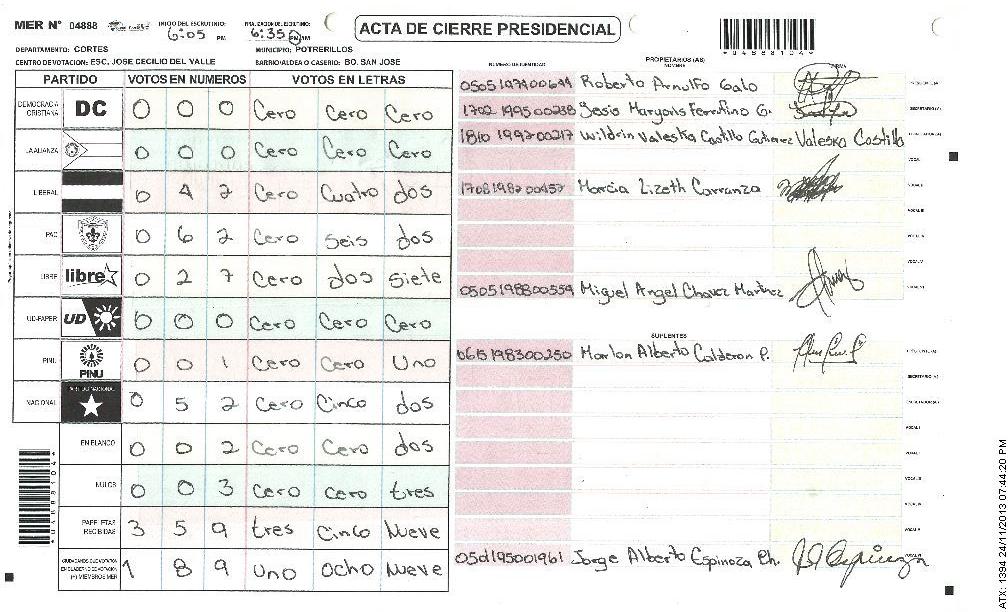 MER N° 04888
INICIO DEL ESCRUTINIO: 6:05 PM
FINALIZACION DEL ESCRUTINIO: 6:35 PM
ACTA DE CIERRE PRESIDENCIAL
DEPARTAMENTO: CORTES
MUNICIPIO: POTRERILLOS
CENTRO DE VOTACION: ESC. JOSE CECILIO DEL VALLE
BARRIO/ALDEA O CASERIO: BO. SAN JOSE
PARTIDO VOTOS EN NUMEROS VOTOS EN LETRAS
DEMOCRACIA CRISTIANA DC 0 0 0 Cero Cero Cero
LA ALIANZA 0 0 0 Cero Cero Cero
LIBERAL 0 4 2 Cero Cuatro dos
PAC 0 6 2 Cero Seis dos
LIBRE libre 0 2 7 Cero dos Siete
UD-FAPER UD 0 0 0 Cero Cero Cero
PINU PINU 0 0 1 Cero Cero Uno
NACIONAL PARTIDO NACIONAL 0 5 2 Cero Cinco dos
EN BLANCO 0 0 2 Cero Cero dos
NULOS 0 0 3 Cero Cero tres
PAPELETAS RECIBIDAS 3 5 9 tres Cinco Nueve
1 8 9 Uno Ocho Nueve
NUMERO DE IDENTIDAD PROPIETARIOS (AS) NOMBRE FIRMA
Roberto Arnulfo Galo
1702 199500238
1810 199200217 Valeska Castillo
1708198200457 Marcia Lizeth Carranza
0505198800559 Miguel Angel Chavez Martinez
SUPLENTES
0615198300250 Marlon Alberto Calderon P.
Jorge Alberto Espinoza Ch.
ATX: 1394 24/11/2013 07:44:20 PM